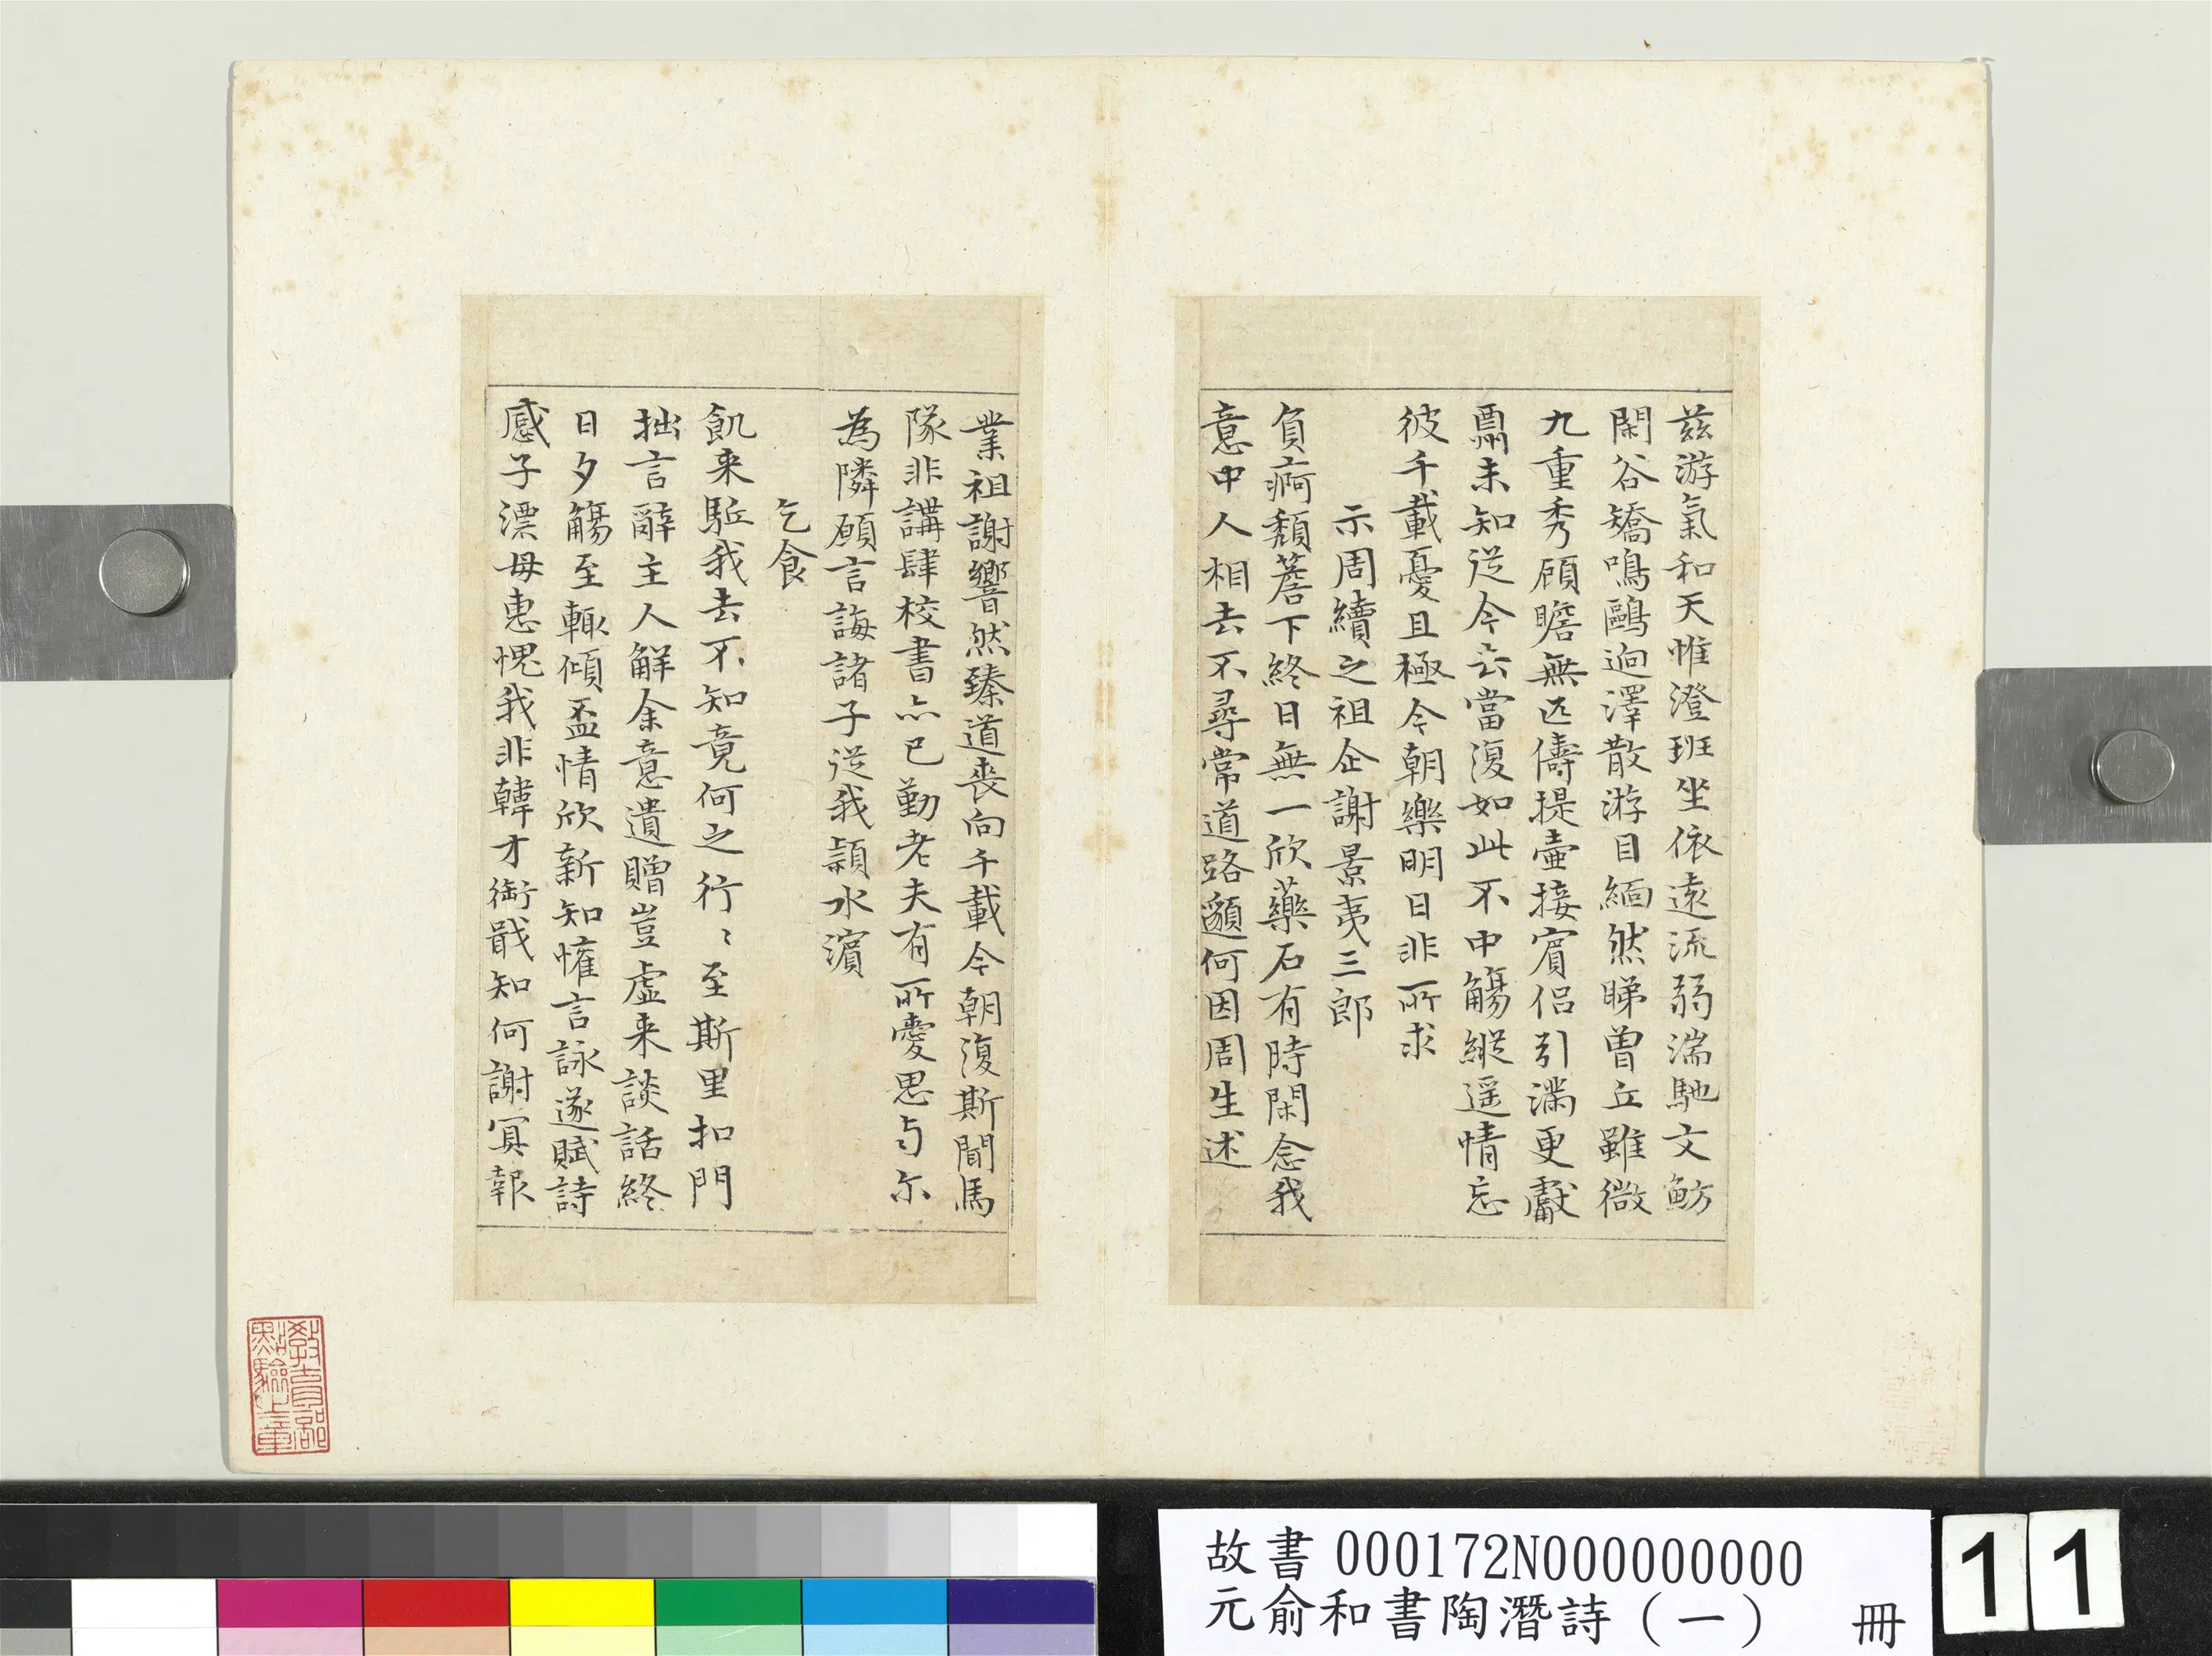 茲游氣和天惟澄班坐依遠流弱湍馳文魴
閑谷矯鳴鷗迥澤散游目緬然睇曽丘雖微
九重秀顧瞻無匹儔提壷接賓侣引滿更獻
酬未知從今去當復如此不中觴縱遥情忘
彼千載憂且極今朝樂明日非所求
示周續之祖企謝景夷三郎
負痾頹簷下終日無一欣藥石有時閑念我
意中人相去不尋常道路邈何因周生述
業祖謝響然臻道喪向千載今朝復斯聞馬
隊非講肆校書亦已勤老夫有所愛思与尓
為隣願言誨諸子從我潁水濱
乞食
飢来駈我去不知竟何之行〻至斯里扣門
拙言辭主人解余意遺贈豈虛来談話終
日夕觴至輒傾盃情欣新知懽言詠遂賦詩
感子漂母惠愧我非韓才銜戢知何謝冥報
教育部
點驗之章
故書 000172N000000000
元俞和書陶潛詩（一） 冊
11